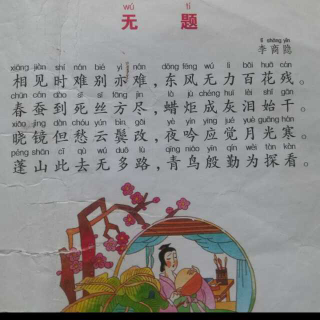 wú tí
无题
lǐ shāng yǐn
李商隐
xiāng jiàn shí nán bié yì nán dōng fēng wú lì bǎi huā cán
相见时难别亦难，东风无力百花残。
chūn cán dào sǐ sī fāng jìn là jù chéng huī lèi shǐ gān
春蚕到死丝方尽，蜡炬成灰泪始干。
xiǎo jìng dàn chóu yún bìn gǎi yè yín yīng jué yuè guāng hán
晓镜但愁云鬓改，夜吟应觉月光寒。
péng shān cǐ qù wú duō lù qīng niǎo yīn qín wèi tàn kàn
蓬山此去无多路，青鸟殷勤为探看。